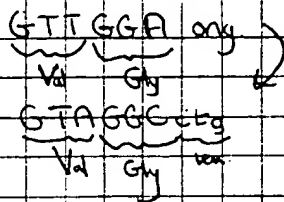 GTT GGA
Val Gly
GTA GGC ctg
Val Gly leu